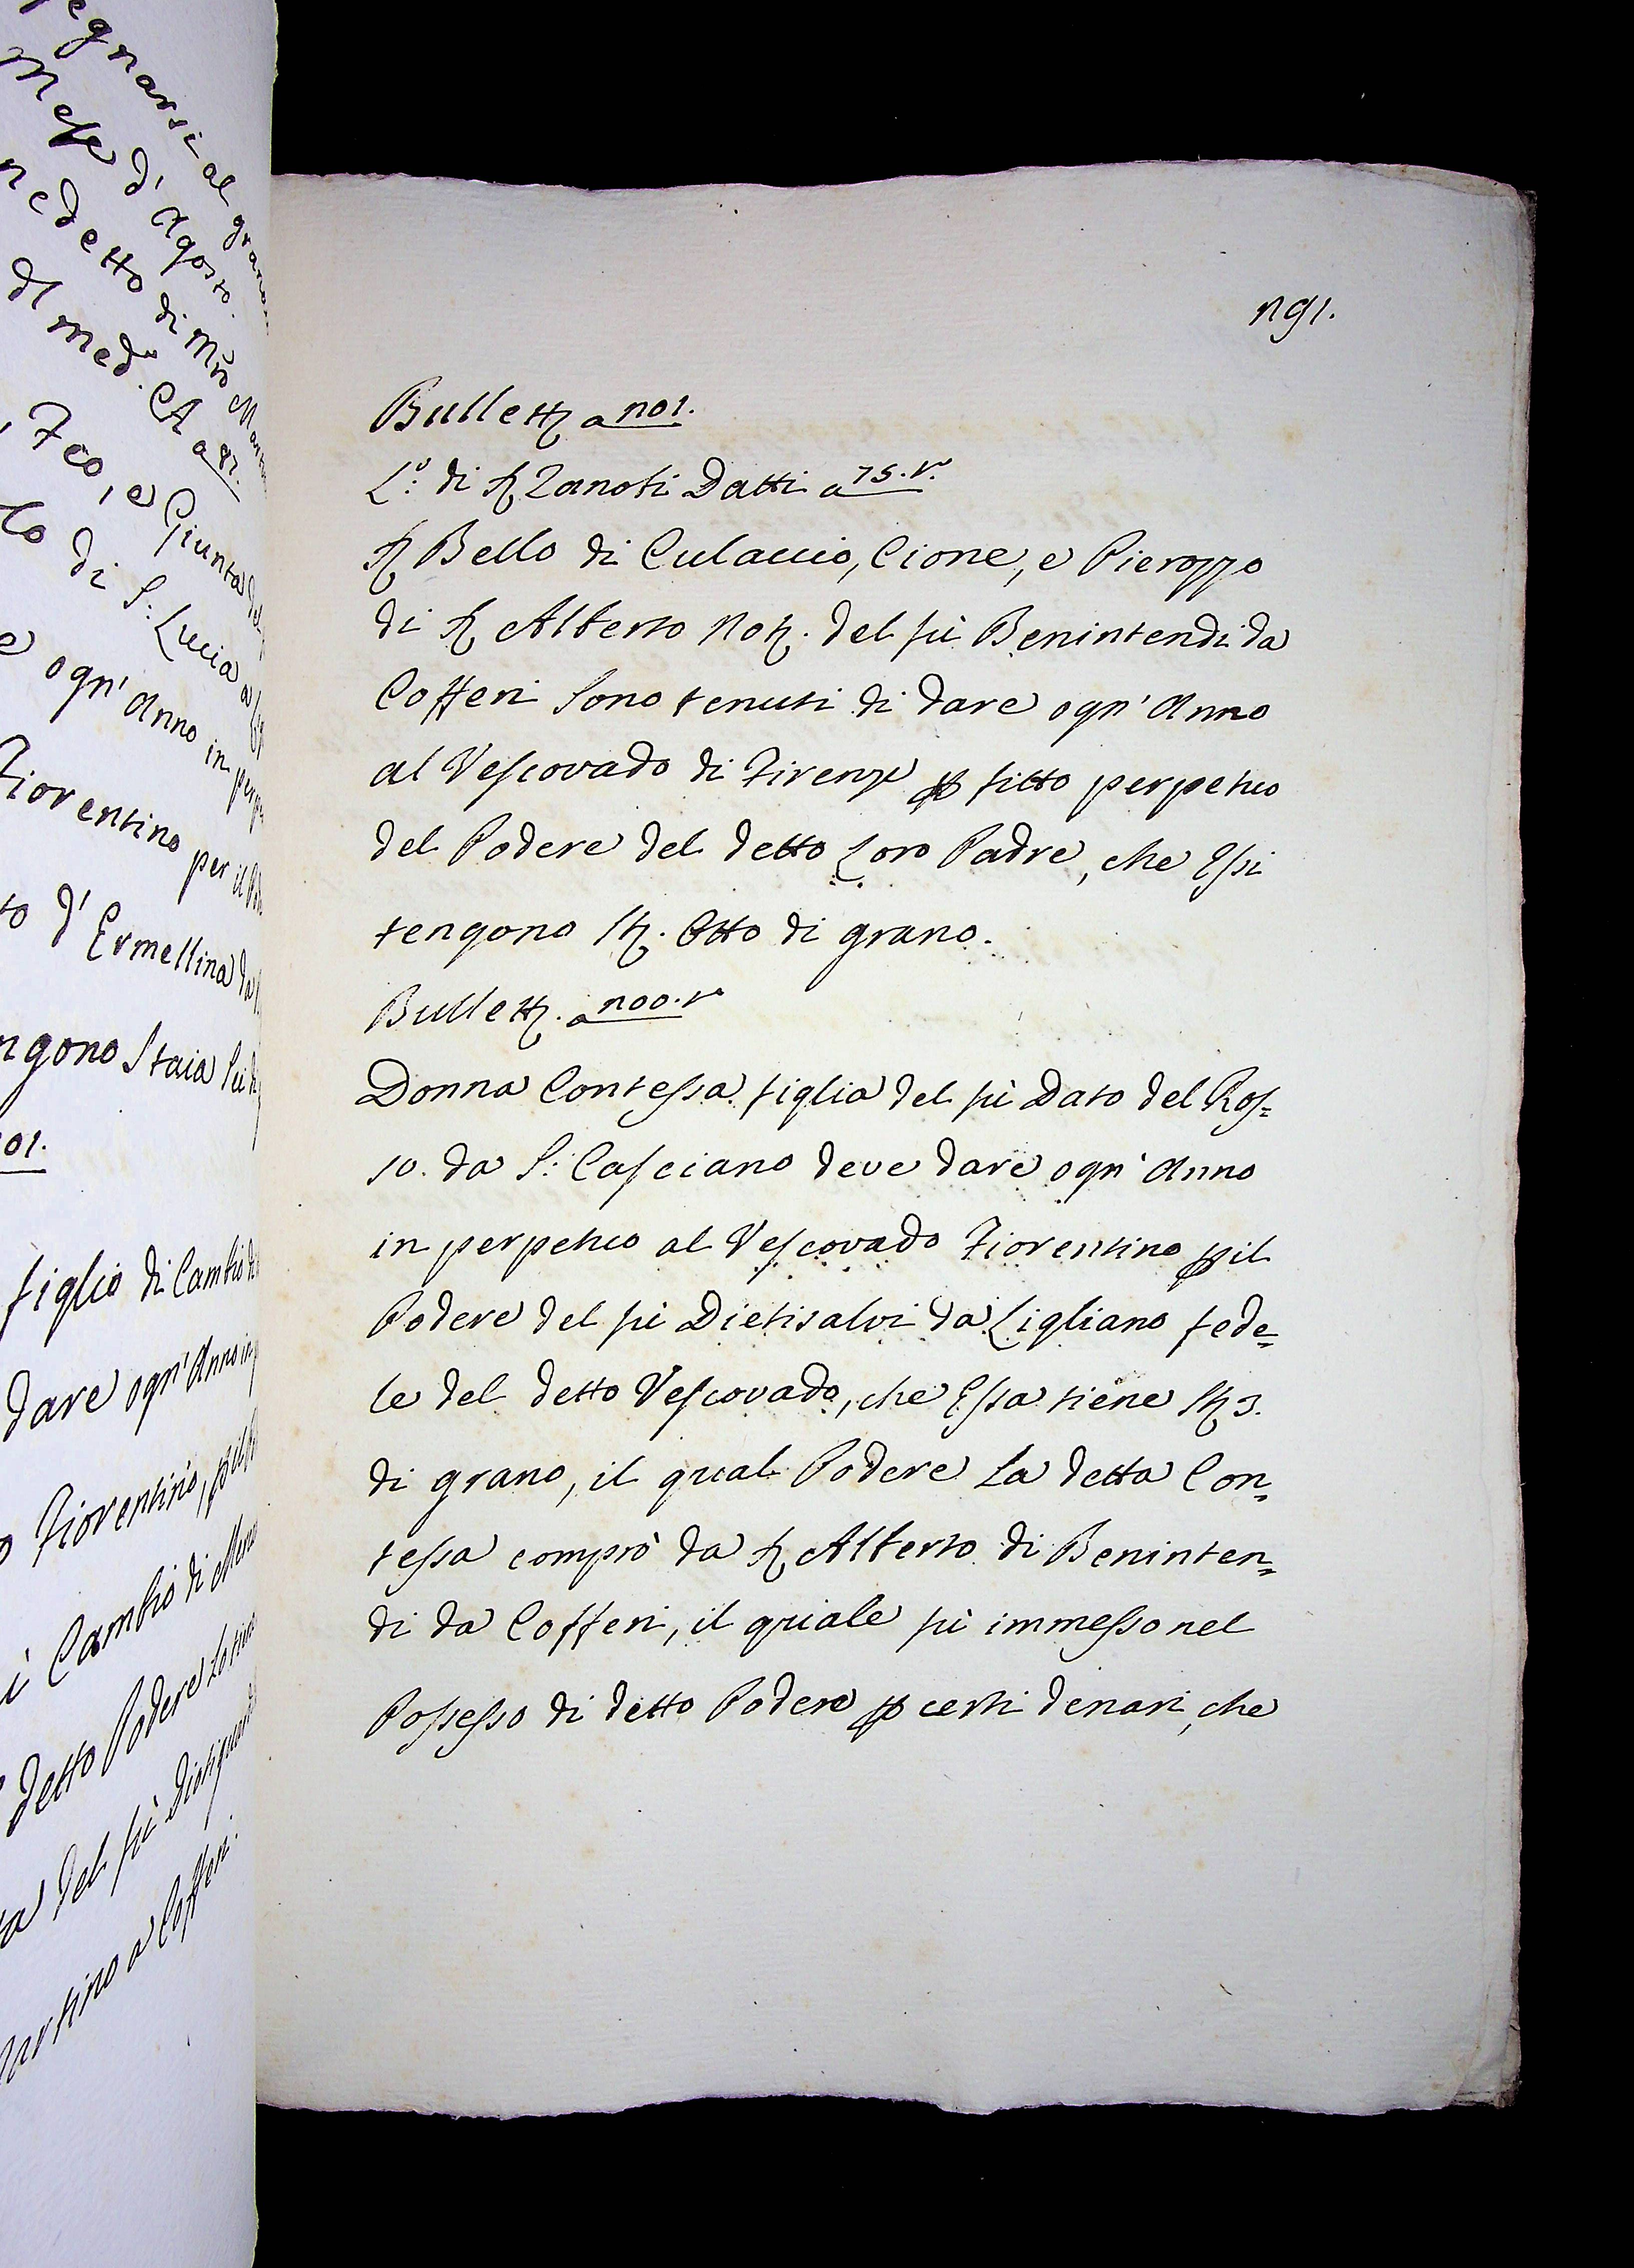 egnarsi al grano
Mese d'Agosto.
nedetto di
Al med.º CA a 87.
Feo, e Giunta del
lo di S: Lucia a
e ogn'Anno in perp
Fiorentino per il Pod
to d'Ermellina da
ngono Staia Sei di
01.
figlio di Cambio di
dare ogn'Anno in
o Fiorentino, p il
i Cambio di
detto Podere lo tiene
ra del fù
Martino a Cofferi.
191.
Bullett. a 101.
L.º: di Sr Zanobi Datti a 75.vº
Sr Bello di Culaccio, Cione, e Pierozzo
di Sr Alberto Not. del fù Benintendi da
Cofferi sono tenuti di dare ogn'Anno
al Vescovado di Firenze p fitto perpetuo
del Podere del detto Loro Padre, che Essi
tengono St. Otto di grano.
Bullett. a 100.vº
Donna Contessa figlia del fù Dato del Ros=
so. da S: Casciano deve dare ogn'Anno
in perpetuo al Vescovado Fiorentino p il
Podere del fù Dietisalvi da Ligliano fede=
le del detto Vescovado, che Essa tiene St 3.
di grano, il qual Podere La detta Con=
tessa comprò da Sr Alberto di Beninten=
di da Cofferi, il quale fù immesso nel
Possesso di detto Podere p certi denari, che